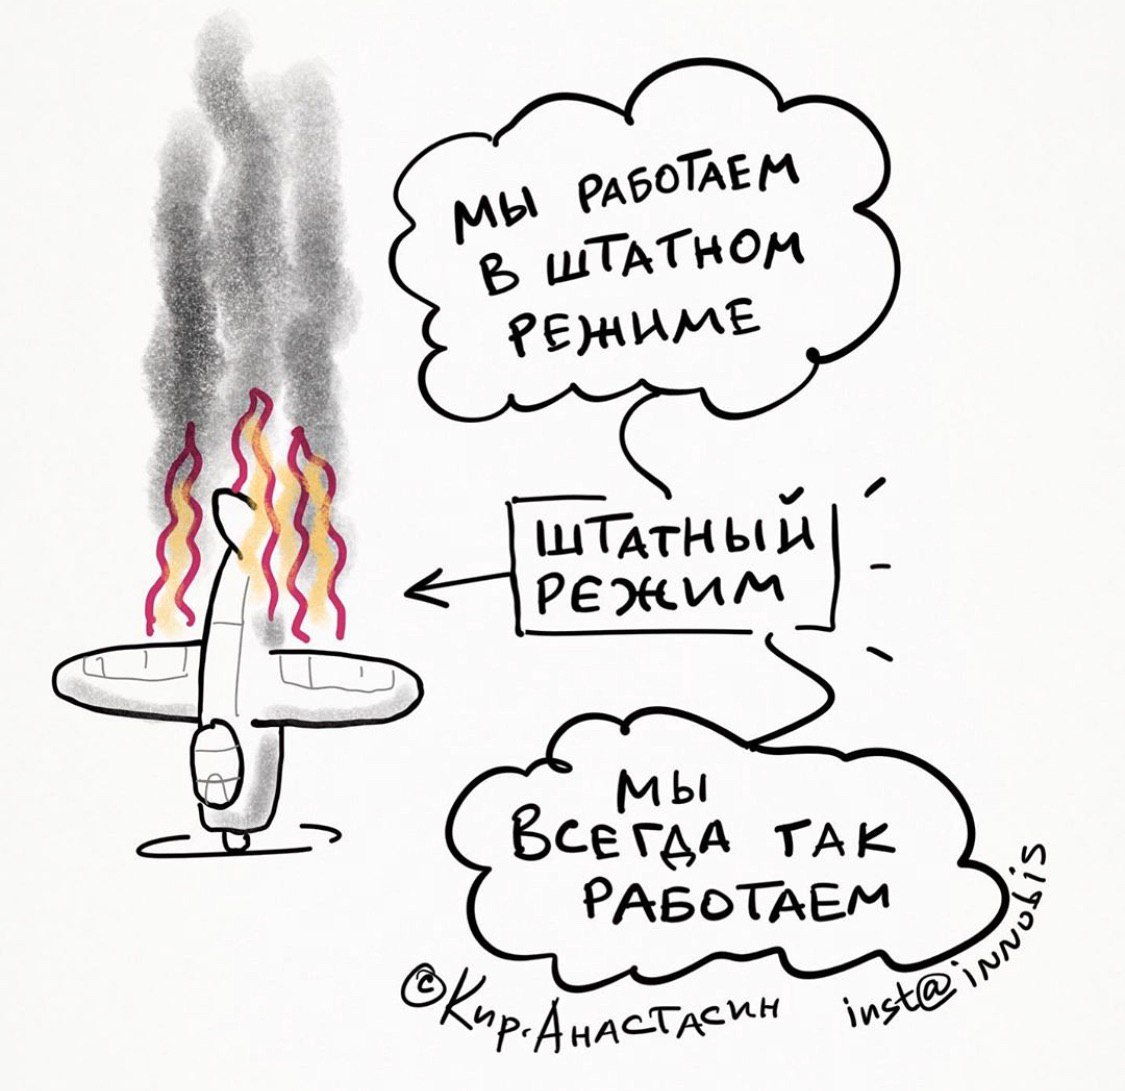 МЫ РАБОТАЕМ
В ШТАТНОМ
РЕЖИМЕ
ШТАТНЫЙ
РЕЖИМ
МЫ
ВСЕГДА ТАК
РАБОТАЕМ
©Кир.Анастасин
inst@innubis